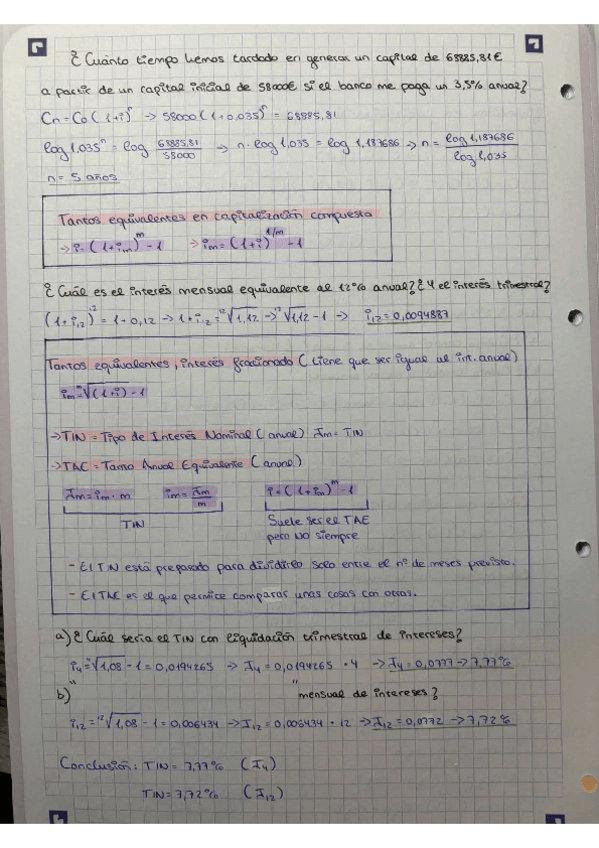 ¿ Cuánto tiempo hemos tardado en generar un capital de 68885,81€
a partir de un capital inicial de 58000€ si el banco me paga un 3,5% anual?
Cn = Co (1+i)ⁿ → 58000 (1+0,035)ⁿ = 68885,81
log 1,035ⁿ = log 68885,81/58000 → n · log 1,035 = log 1,187686 → n = log 1,187686/log 1,035
n = 5 años
Tantos equivalentes en capitalización compuesta
→ i = (1+im)^m - 1 → im = (1+i)^1/m - 1
¿ Cuál es el interés mensual equivalente al 12% anual? ¿ Y el interés trimestral?
(1+i₁₂)¹² = 1+0,12 → 1+i₁₂ = ¹²√1,12 → ¹²√1,12 - 1 → i₁₂ = 0,0094887
Tantos equivalentes, interés fraccionado (tiene que ser igual al int. anual)
im = ᵐ√(1+i) - 1
→ TIN = Tipo de Interés Nominal (anual) Jm = TIN
→ TAC = Tamo Anual Equivalente (anual)
Jm = im · m im = Jm/m i = (1+im)^m - 1
TIN Suele ser el TAE
pero NO siempre
- El TIN está preparado para dividirlo solo entre el nº de meses previsto.
- El TAE es el que permite comparar unas cosas con otras.
a) ¿ Cuál sería el TIN con liquidación trimestral de intereses?
i₄ = ⁴√1,08 - 1 = 0,0194265 → J₄ = 0,0194265 · 4 → J₄ = 0,0777 → 7,77%
b) " " mensual de intereses?
i₁₂ = ¹²√1,08 - 1 = 0,006434 → J₁₂ = 0,006434 · 12 → J₁₂ = 0,0772 → 7,72%
Conclusión: TIN = 7,77% (J₄)
TIN = 7,72% (J₁₂)